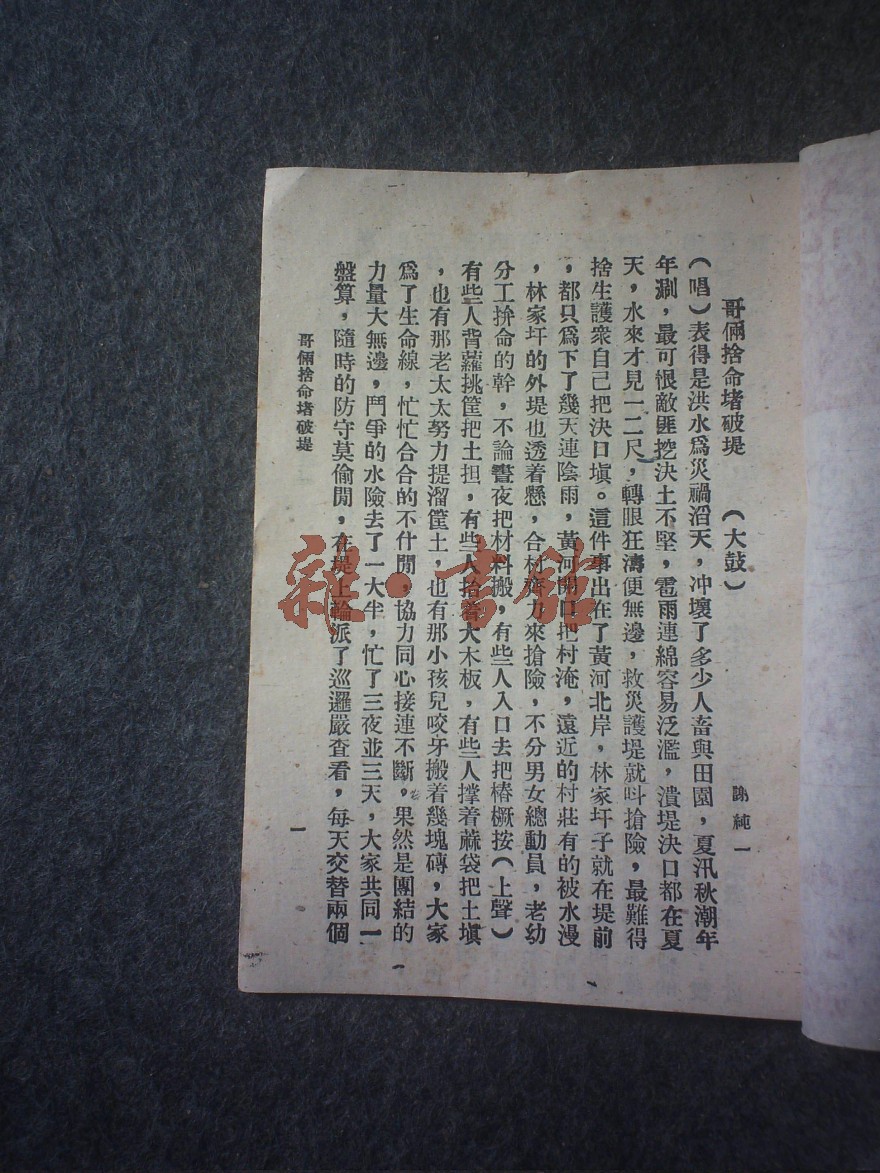 哥倆捨命堵破堤　　（大鼓）　　謝純一
（唱）表得是洪水爲災禍滔天，冲壞了多少人畜與田園，夏汛秋潮年
年涮，最可恨敵匪挖決土不堅，雹雨連綿容易泛濫，潰堤決口都在夏
天，水來才見一二尺，轉眼狂濤便無邊，救災護堤就叫搶險，最難得
捨生護衆自己把決口塡。這件事出在了黃河北岸，林家圩子就在堤前
，都只爲下了幾天連陰雨，黃河開口把村淹，遠近的村莊有的被水漫
，林家圩的外堤也透着懸，合村齊力來搶險，不分男女總動員，老幼
分工拚命的幹，不論晝夜把材料搬，有些人入口去把樁橛按（上聲）
有些人背蘿挑筐把土担，有些人抬着大木板，有些人撑着蔴袋把土塡
，也有那老太太努力提溜筐土，也有那小孩兒咬牙搬着幾塊磚，大家
爲了生命線，忙忙合合的不什閒，協力同心接連不斷，果然是團結的
力量大無邊，鬥爭的水險去了一大半，忙了三夜並三天，大家共同一
盤算，隨時的防守莫偷閒，在堤上輪派了巡邏嚴查看，每天交替兩個
哥倆捨命堵破堤　　一
雜·書館